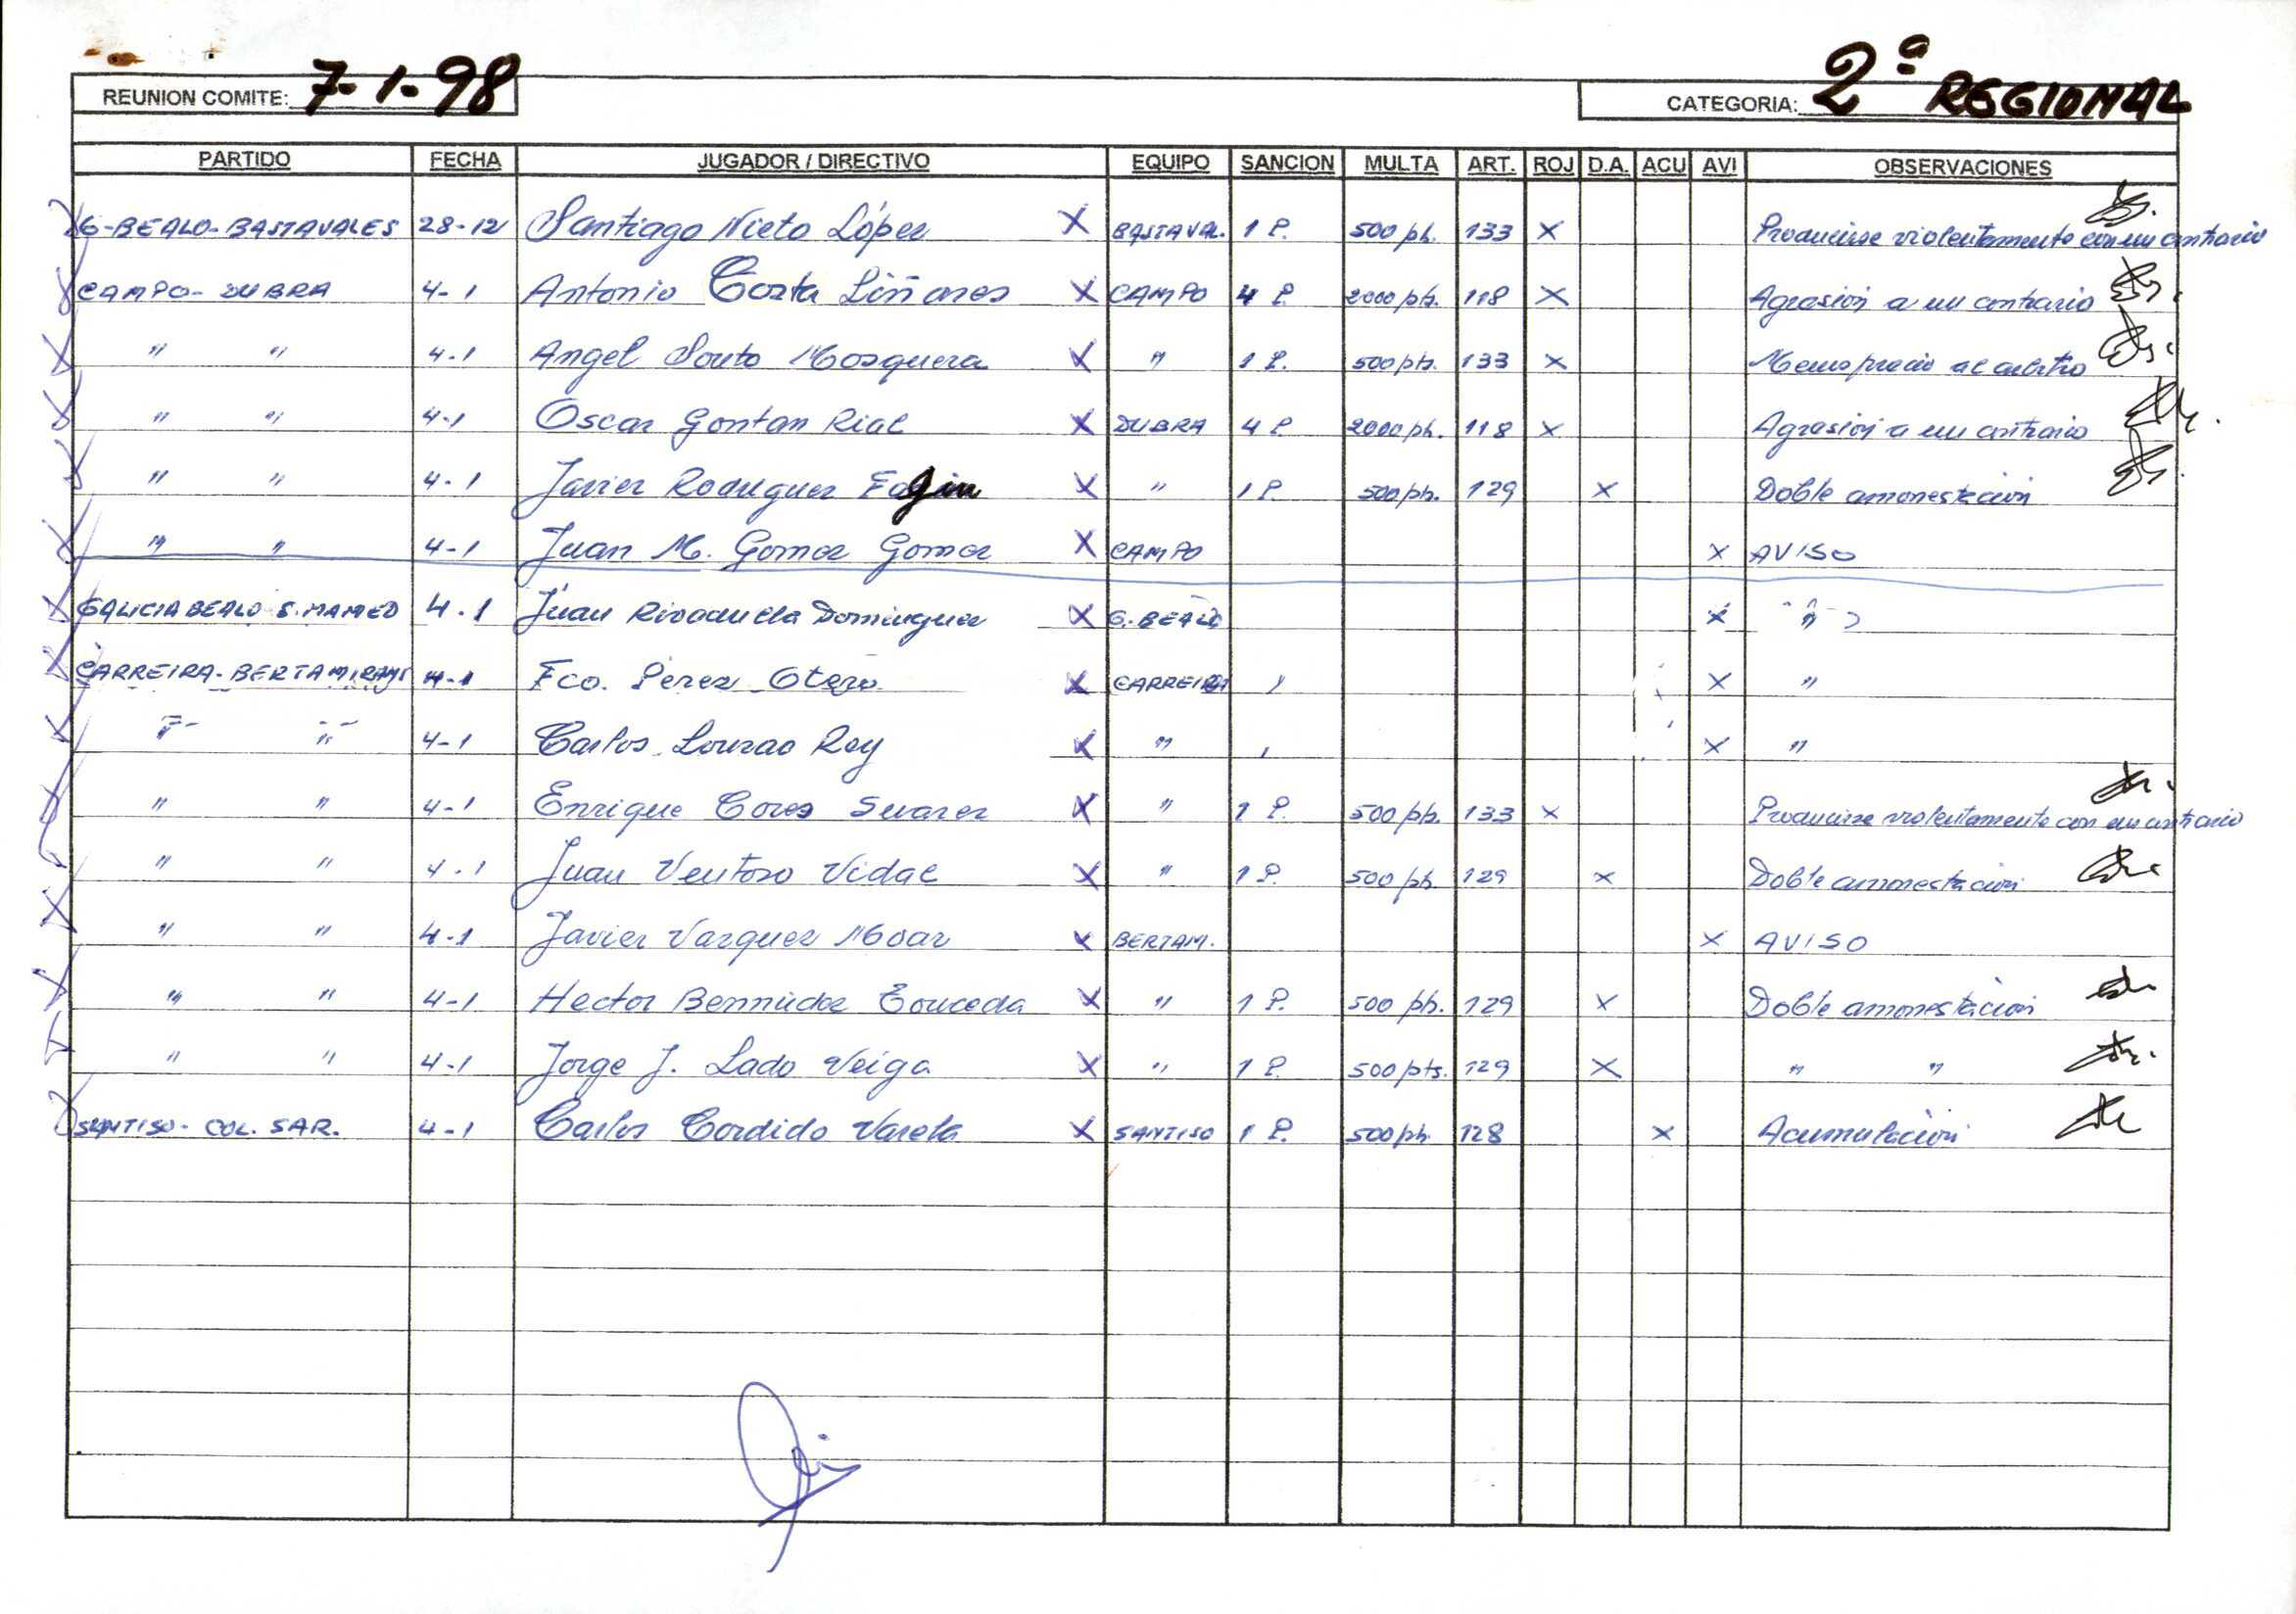 REUNION COMITE: 7-1-98 CATEGORIA: 2ª REGIONAL
PARTIDO FECHA JUGADOR / DIRECTIVO EQUIPO SANCION MULTA ART. ROJ D.A. ACU AVI OBSERVACIONES
G-BEALO-BASTAVALES 28-12 Santiago Nieto López X BASTAVAL. 1 P. 500 pts. 133 X Producirse violentamente con un contrario
CAMPO-DUBRA 4-1 Antonio Costa Liñares X CAMPO 4 P. 2000 pts. 118 X Agresión a un contrario
" " 4-1 Angel Souto Mosquera X " 1 P. 500 pts. 133 X Menosprecio al arbitro
" " 4-1 Oscar Gontan Rial X DUBRA 4 P. 2000 pts. 118 X Agresión a un contrario
" " 4-1 Javier Rodriguez X " 1 P. 500 pts. 129 X Doble amonestación
" " 4-1 Juan M. Gomez Gomez X CAMPO X AVISO
GALICIA BEALO-S. MAMED 4-1 Juan Rivadulla Dominguez X G. BEALO X "
CARREIRA-BERTAMIRANS 4-1 Fco. Perez Otero X CARREIRA X "
" " 4-1 Carlos Lourao Rey X " X "
" " 4-1 Enrique Cores Suarez X " 1 P. 500 pts. 133 X Producirse violentamente con un contrario
" " 4-1 Juan Ventoso Vidal X " 1 P. 500 pts. 129 X Doble amonestación
" " 4-1 Javier Vazquez Moar X BERTAM. X AVISO
" " 4-1 Hector Bermúdez Touceda X " 1 P. 500 pts. 129 X Doble amonestación
" " 4-1 Jorge J. Lado Veiga X " 1 P. 500 pts. 129 X " "
SANTISO-COL. SAR. 4-1 Carlos Cordido Varela X SANTISO 1 P. 500 pts. 128 X Acumulación